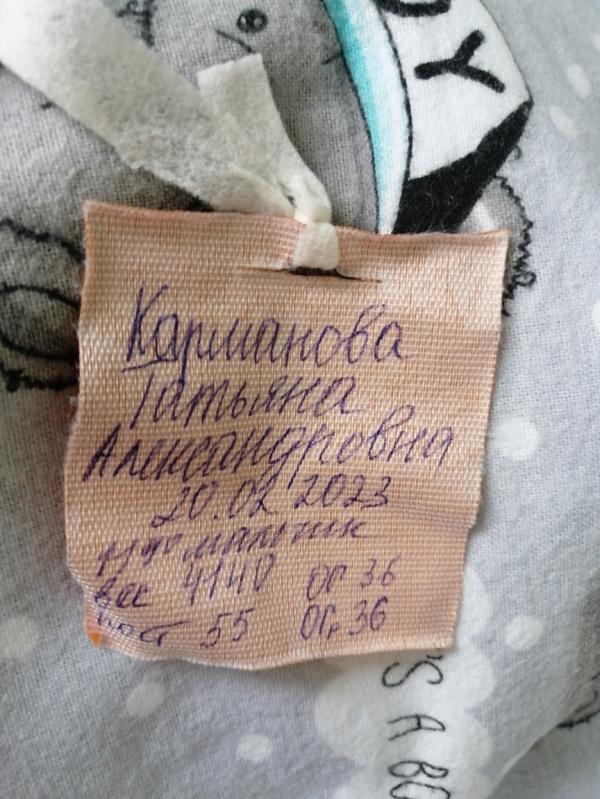 OY
Карманова
Татьяна
Александровна
20.02 2023
мальчик
вес 4140 ог 36
рост 55 ог. 36
'S A BO